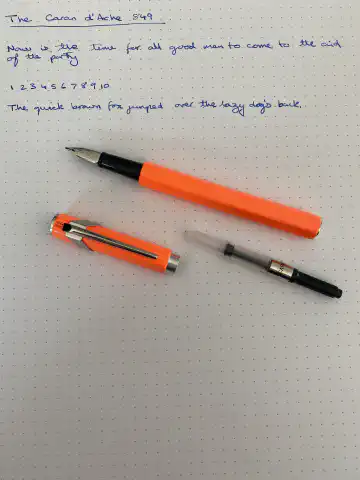 The Caran d'Ache 849
Now is the time for all good men to come to the aid
of the party
1 2 3 4 5 6 7 8 9 10
The quick brown fox jumped over the lazy dogs back.